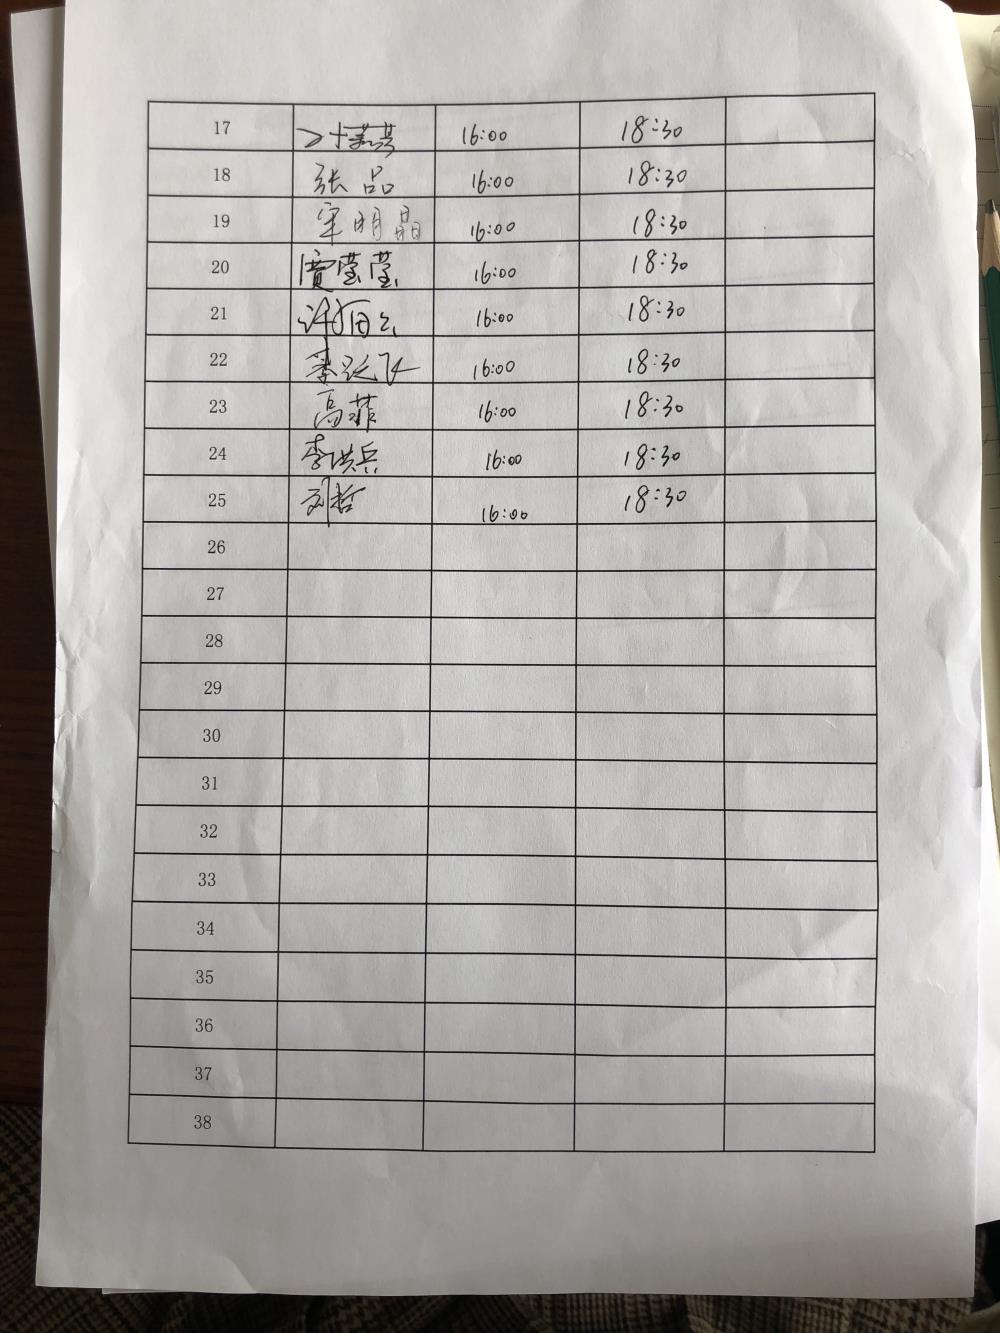 17 16:00 18:30
18 张品 16:00 18:30
19 宋明晶 16:00 18:30
20 贾莹莹 16:00 18:30
21 许 16:00 18:30
22 季跃飞 16:00 18:30
23 高菲 16:00 18:30
24 李洪兵 16:00 18:30
25 刘哲 16:00 18:30
26
27
28
29
30
31
32
33
34
35
36
37
38